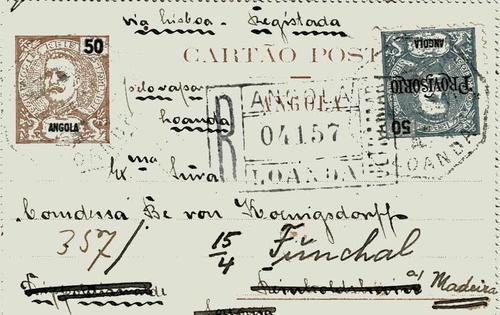 via Lisboa - Registada
50
CARTÃO POST
ANGOLA
PROVISORIO
50
pelo vapor
ANGOLA
ANGOLA
Loanda
R
04157
LOANDA
ANGOLA
LOANDA
Exma Snra
Comdessa Be von Koenigsdorff
357/
15/4
Funchal
a/ Madeira